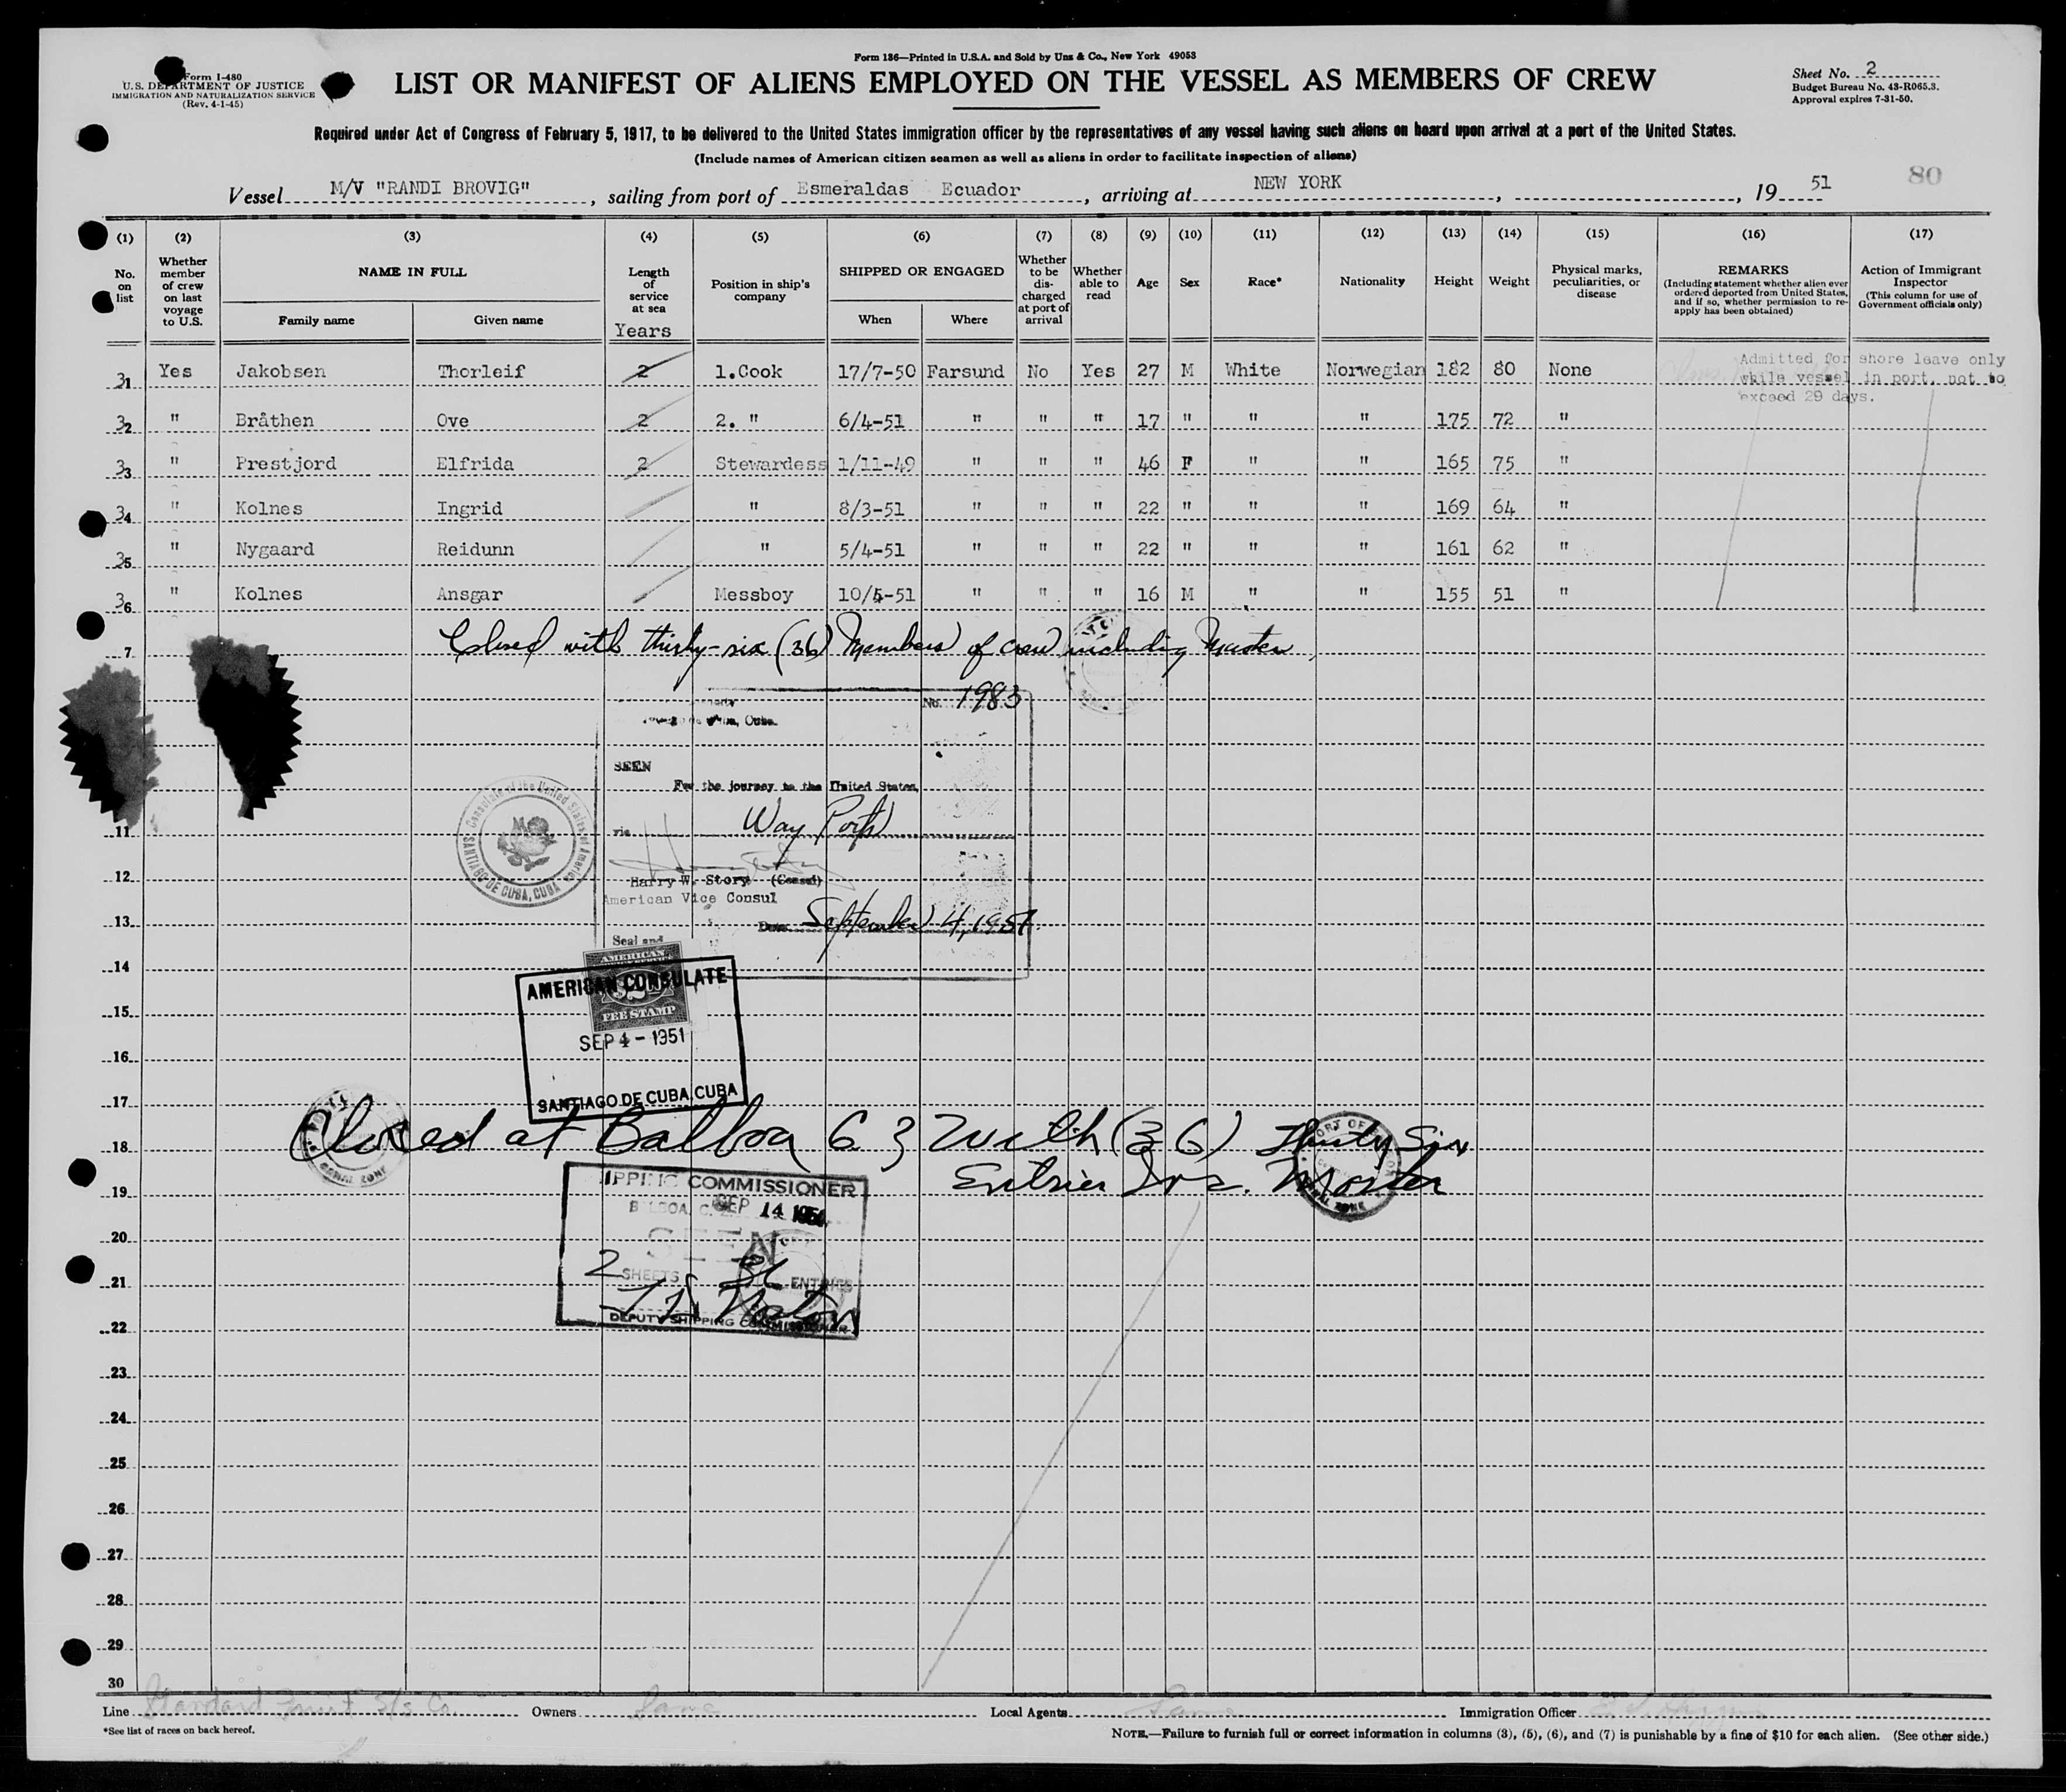 Form 136—Printed in U.S.A. and Sold by Unz & Co., New York 49053
Form I-480
U.S. DEPARTMENT OF JUSTICE
IMMIGRATION AND NATURALIZATION SERVICE
(Rev. 4-1-45)
LIST OR MANIFEST OF ALIENS EMPLOYED ON THE VESSEL AS MEMBERS OF CREW
Sheet No. 2
Budget Bureau No. 43-R065.3.
Approval expires 7-31-50.
Required under Act of Congress of February 5, 1917, to be delivered to the United States immigration officer by the representatives of any vessel having such aliens on board upon arrival at a port of the United States.
(Include names of American citizen seamen as well as aliens in order to facilitate inspection of aliens)
80
Vessel M/V "RANDI BROVIG", sailing from port of Esmeraldas Ecuador, arriving at NEW YORK, , 19 51
(1) (2) (3) (4) (5) (6) (7) (8) (9) (10) (11) (12) (13) (14) (15) (16) (17)
No. on list
Whether member of crew on last voyage to U.S.
NAME IN FULL
Family name Given name
Length of service at sea
Years
Position in ship's company
SHIPPED OR ENGAGED
When Where
Whether to be discharged at port of arrival
Whether able to read
Age
Sex
Race*
Nationality
Height
Weight
Physical marks, peculiarities, or disease
REMARKS
(Including statement whether alien ever ordered deported from United States, and if so, whether permission to reapply has been obtained)
Action of Immigrant Inspector
(This column for use of Government officials only)
31 Yes Jakobsen Thorleif 2 1.Cook 17/7-50 Farsund No Yes 27 M White Norwegian 182 80 None
Admitted for shore leave only
while vessel in port, not to
exceed 29 days.
32 " Bråthen Ove 2 2. " 6/4-51 " " " 17 " " " 175 72 "
33 " Prestjord Elfrida 2 Stewardess 1/11-49 " " " 46 F " " 165 75 "
34 " Kolnes Ingrid " 8/3-51 " " " 22 " " " 169 64 "
35 " Nygaard Reidunn " 5/4-51 " " " 22 " " " 161 62 "
36 " Kolnes Ansgar Messboy 10/5-51 " " " 16 M " " 155 51 "
7 Closed with thirty-six (36) Members of crew including Master
No. 1983
Cuba.
SEEN
For the journey to the United States,
Consulate of the United States of America
SANTIAGO DE CUBA, CUBA
11
via Way Ports
12
Harry W. Story (Consul)
American Vice Consul
13
Date September 4, 1951
Seal and
14
AMERICAN
FEE STAMP
AMERICAN CONSULATE
15
SEP 4 - 1951
16
SANTIAGO DE CUBA, CUBA
17
18
Closed at Balboa C Z with (36) Thirty Six
Entries Inc. Master
19
SHIPPING COMMISSIONER
BALBOA, C. Z. SEP 14 1951
20
SEEN
21
2 SHEETS 36 ENTRIES
22
DEPUTY SHIPPING COMMISSIONER
23
24
25
26
27
28
29
30
Line Standard Fruit S/S Co. Owners Same Local Agents Same Immigration Officer
*See list of races on back hereof.
NOTE.—Failure to furnish full or correct information in columns (3), (5), (6), and (7) is punishable by a fine of $10 for each alien. (See other side.)